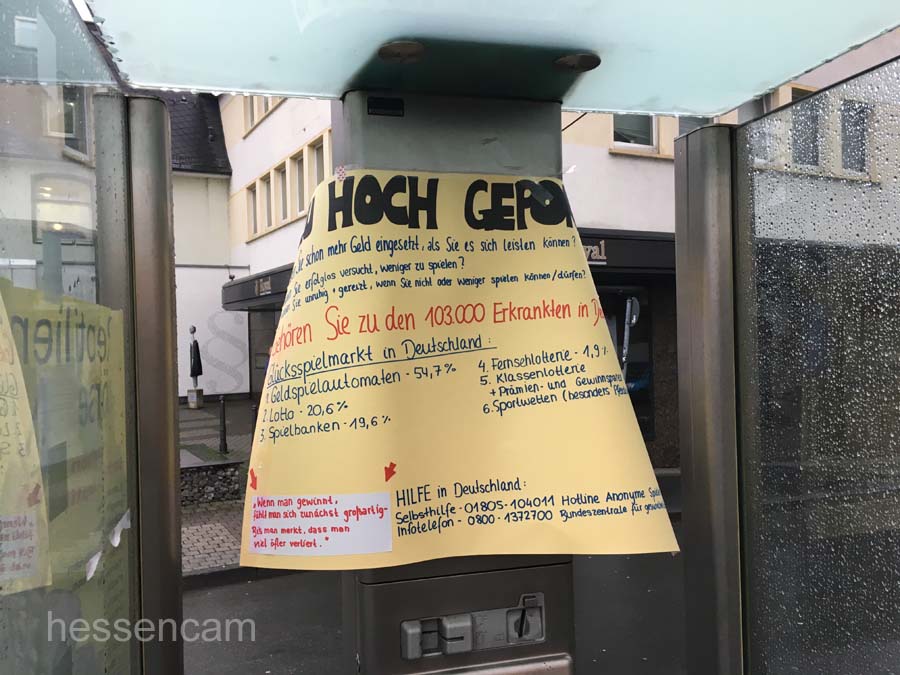 HOCH GEPO
Sie schon mehr Geld eingesetzt, als Sie es sich leisten können?
Sie erfolglos versucht, weniger zu spielen?
Sie unruhig, gereizt, wenn Sie nicht oder weniger spielen können/dürfen?
ehören Sie zu den 103.000 Erkrankten in D
lücksspielmarkt in Deutschland:
Geldspielautomaten - 54,7%
2. Lotto - 20,6%
3. Spielbanken - 19,6%
4. Fernsehlotterie - 1,9%
5. Klassenlotterie
+ Prämien- und Gewinnspare
6. Sportwetten (besonders Pferd
"Wenn man gewinnt,
fühlt man sich zunächst großartig-
Bis man merkt, dass man
viel öfter verliert."
HILFE in Deutschland:
Selbsthilfe - 01805-104011 Hotline Anonyme Spiel
Infotelefon - 0800-1372700 Bundeszentrale für gesun
Royal
hessencam